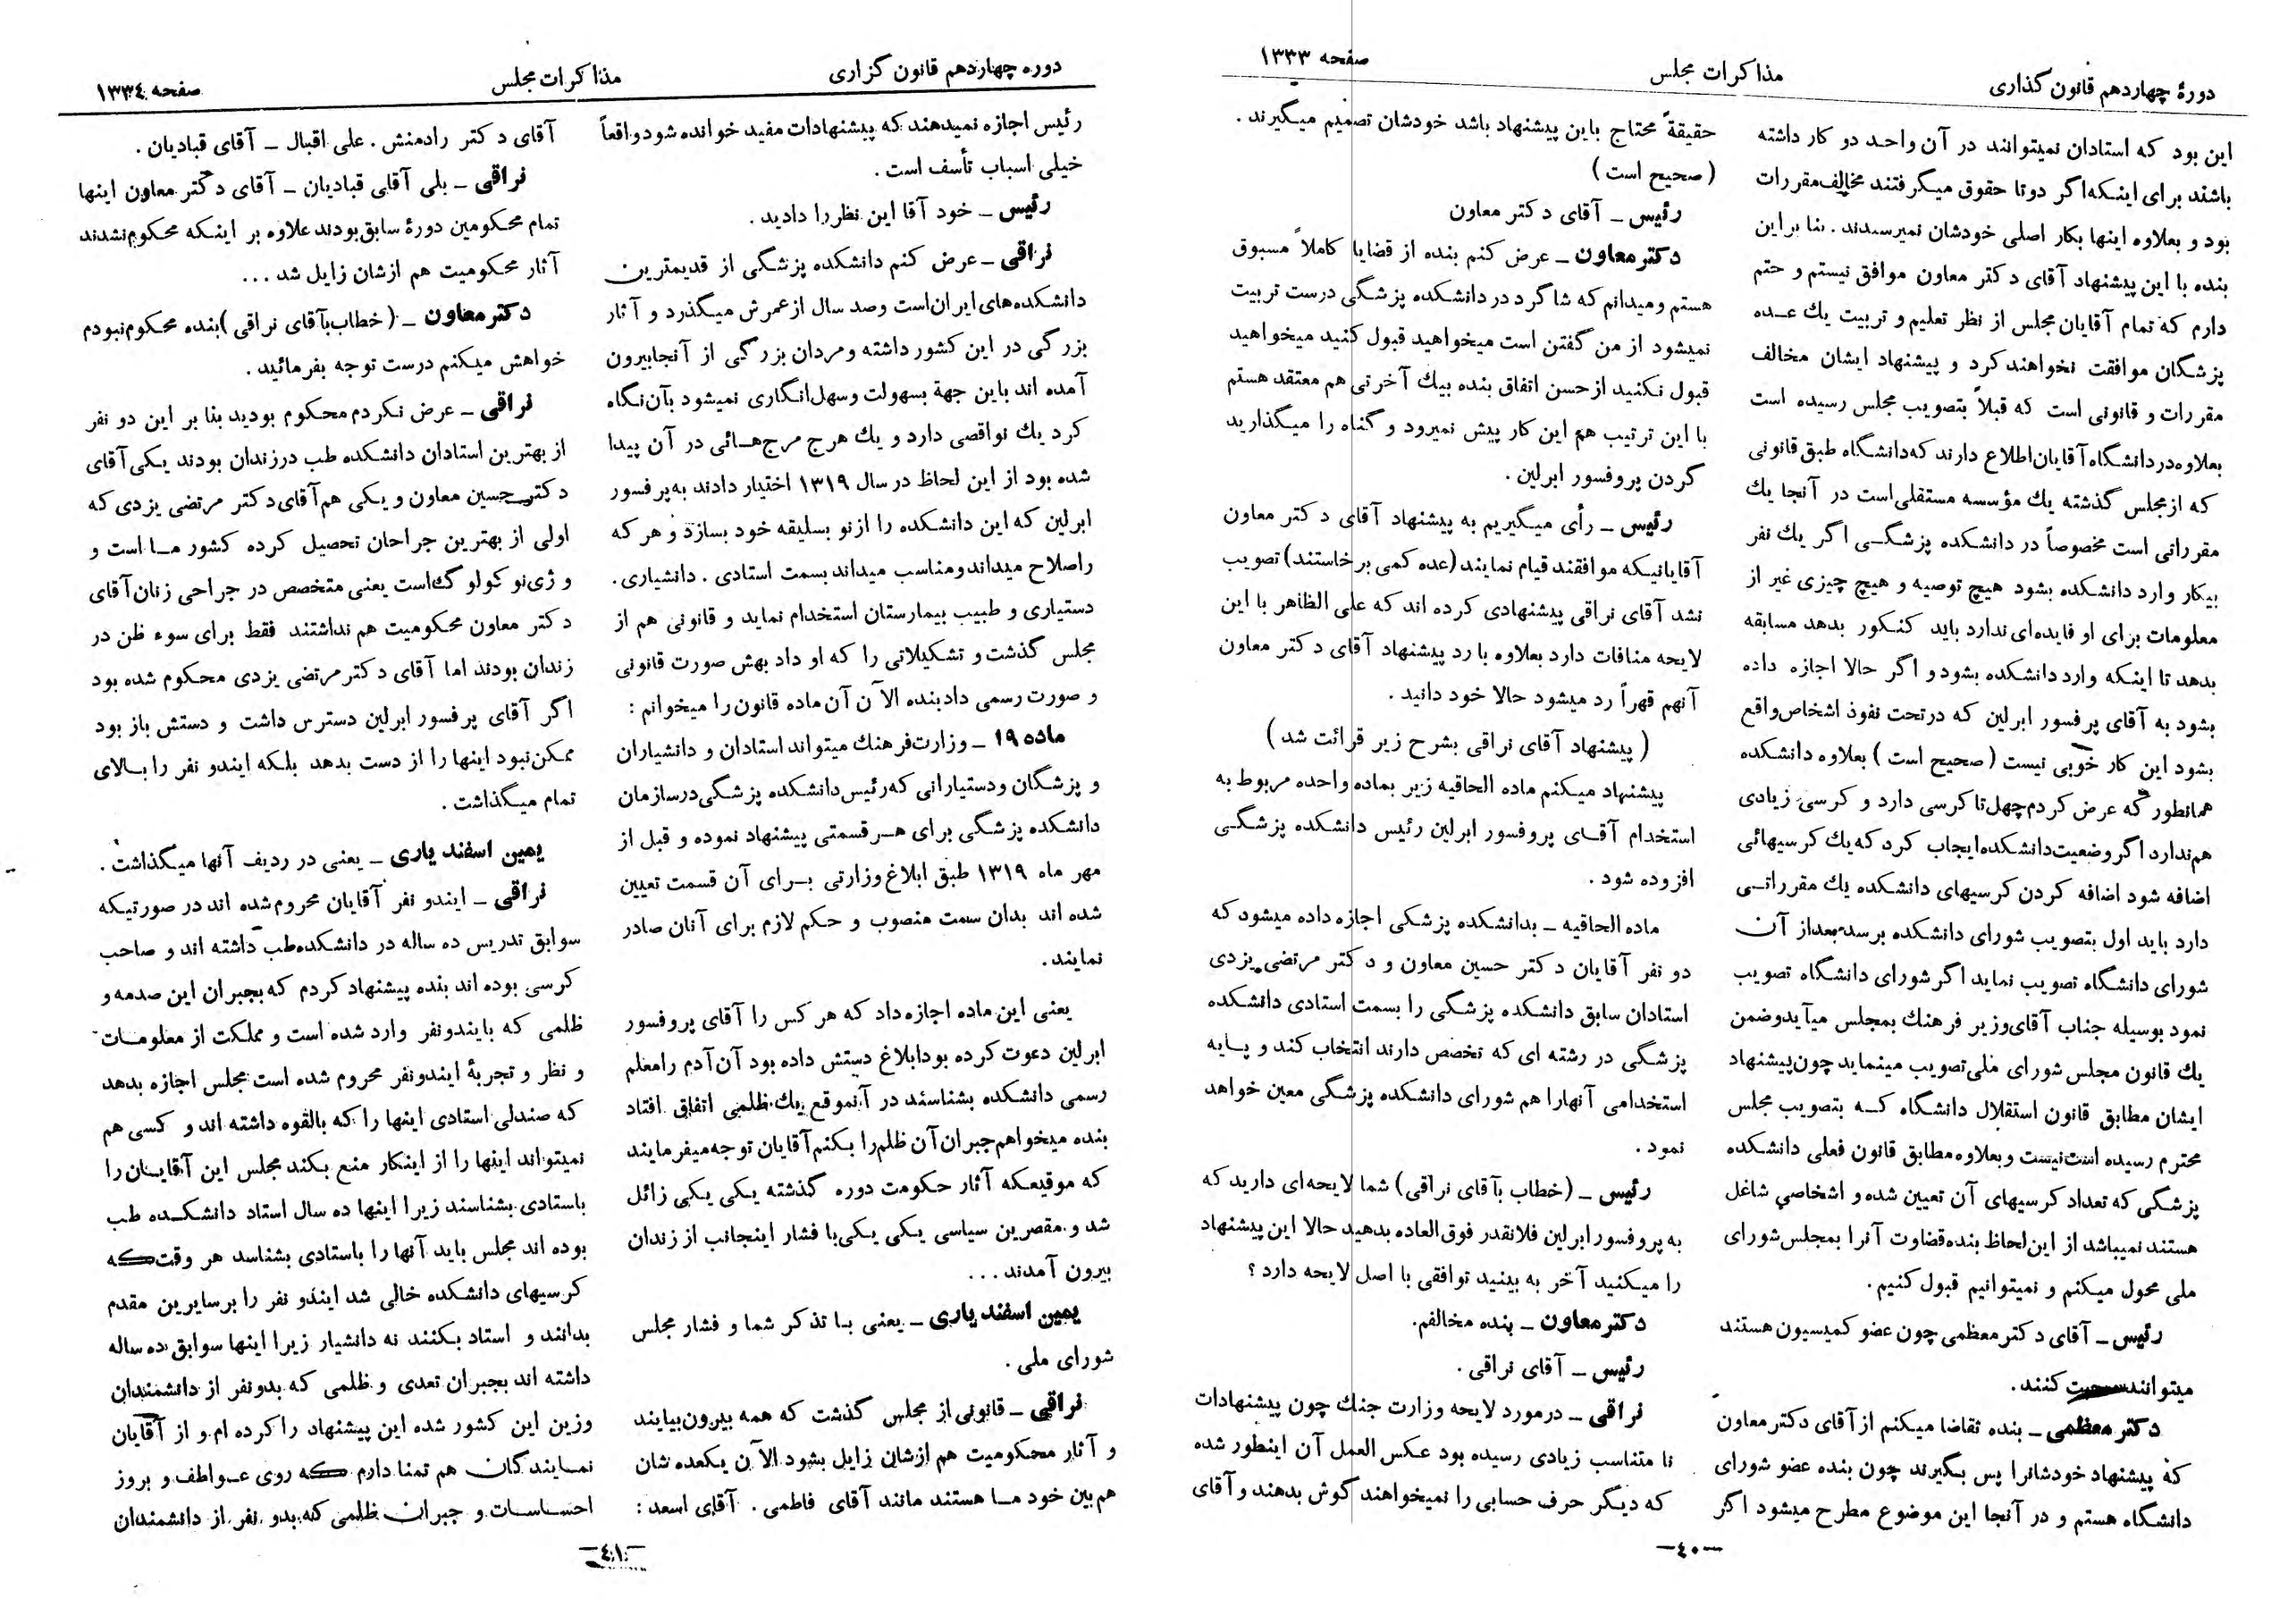 دورهٔ چهاردهم قانون گذاری
مذاکرات مجلس
صفحه ۱۳۳۳
این بود که استادان نمیتوانند در آن واحد دو کار داشته
باشند برای اینکه اگر دوتا حقوق میگرفتند مخالف مقررات
بود و بعلاوه اینها بکار اصلی خودشان نمیرسیدند . بنا براین
بنده با این پیشنهاد آقای دکتر معاون موافق نیستم و حتم
دارم که تمام آقایان مجلس از نظر تعلیم و تربیت یك عده
پزشگان موافقت نخواهند کرد و پیشنهاد ایشان مخالف
مقررات و قانونی است که قبلاً بتصویب مجلس رسیده است
بعلاوه در دانشگاه آقایان اطلاع دارند که دانشگاه طبق قانونی
که از مجلس گذشته یك مؤسسه مستقلی است در آنجا یك
مقرراتی است مخصوصاً در دانشکده پزشگی اگر یك نفر
بیکار وارد دانشکده بشود هیچ توصیه و هیچ چیزی غیر از
معلومات برای او فایده‌ای ندارد باید کنکور بدهد مسابقه
بدهد تا اینکه وارد دانشکده بشود و اگر حالا اجازه داده
بشود به آقای پرفسور ابرلین که در تحت نفوذ اشخاص واقع
بشود این کار خوبی نیست ( صحیح است ) بعلاوه دانشکده
همانطور که عرض کردم چهل تا کرسی دارد و کرسی زیادی
هم ندارد اگر وضعیت دانشکده ایجاب کرد که یك کرسیهائی
اضافه شود اضافه کردن کرسیهای دانشکده یك مقرراتی
دارد باید اول بتصویب شورای دانشکده برسد بعد از آن
شورای دانشگاه تصویب نماید اگر شورای دانشگاه تصویب
نمود بوسیله جناب آقای وزیر فرهنك بمجلس میآید و ضمن
یك قانون مجلس شورای ملی تصویب مینماید چون پیشنهاد
ایشان مطابق قانون استقلال دانشگاه که بتصویب مجلس
محترم رسیده است نیست و بعلاوه مطابق قانون فعلی دانشکده
پزشگی که تعداد کرسیهای آن تعیین شده و اشخاصی شاغل
هستند نمیباشد از این لحاظ بنده قضاوت آنرا بمجلس شورای
ملی محول میکنم و نمیتوانیم قبول کنیم .
رئیس ــ آقای دکتر معظمی چون عضو کمیسیون هستند
میتوانند صحبت کنند .
دکتر معظمی ــ بنده تقاضا میکنم از آقای دکتر معاون
که پیشنهاد خودشانرا پس بگیرند چون بنده عضو شورای
دانشگاه هستم و در آنجا این موضوع مطرح میشود اگر
حقیقةً محتاج باین پیشنهاد باشد خودشان تصمیم میگیرند .
( صحیح است )
رئیس ــ آقای دکتر معاون
دکتر معاون ــ عرض کنم بنده از قضایا کاملاً مسبوق
هستم و میدانم که شاگرد در دانشکده پزشگی درست تربیت
نمیشود از من گفتن است میخواهید قبول کنید میخواهید
قبول نکنید از حسن اتفاق بنده بیك آخرتی هم معتقد هستم
با این ترتیب هم این کار پیش نمیرود و گناه را میگذارید
گردن پروفسور ابرلین .
رئیس ــ رأی میگیریم به پیشنهاد آقای دکتر معاون
آقایانیکه موافقند قیام نمایند (عده کمی برخاستند) تصویب
نشد آقای نراقی پیشنهادی کرده اند که علی الظاهر با این
لایحه منافات دارد بعلاوه با رد پیشنهاد آقای دکتر معاون
آنهم قهراً رد میشود حالا خود دانید .
( پیشنهاد آقای نراقی بشرح زیر قرائت شد )
پیشنهاد میکنم ماده الحاقیه زیر بماده واحده مربوط به
استخدام آقای پروفسور ابرلین رئیس دانشکده پزشگی
افزوده شود .
ماده الحاقیه ــ بدانشکده پزشکی اجازه داده میشود که
دو نفر آقایان دکتر حسین معاون و دکتر مرتضی یزدی
استادان سابق دانشکده پزشگی را بسمت استادی دانشکده
پزشگی در رشته ای که تخصص دارند انتخاب کند و پایه
استخدامی آنهارا هم شورای دانشکده پزشگی معین خواهد
نمود .
رئیس ــ (خطاب بآقای نراقی) شما لایحه‌ای دارید که
به پروفسور ابرلین فلانقدر فوق العاده بدهید حالا این پیشنهاد
را میکنید آخر به بینید توافقی با اصل لایحه دارد ؟
دکتر معاون ــ بنده مخالفم.
رئیس ــ آقای نراقی .
نراقی ــ در مورد لایحه وزارت جنك چون پیشنهادات
نا متناسب زیادی رسیده بود عکس العمل آن اینطور شده
که دیگر حرف حسابی را نمیخواهند گوش بدهند و آقای
ــ۴۰ــ
دوره چهاردهم قانون گزاری
مذاکرات مجلس
صفحه ۱۳۳۴
رئیس اجازه نمیدهند که پیشنهادات مفید خوانده شود واقعاً
خیلی اسباب تأسف است .
رئیس ــ خود آقا این نظر را دادید .
نراقی ــ عرض کنم دانشکده پزشگی از قدیمترین
دانشکده‌های ایران است و صد سال از عمرش میگذرد و آثار
بزرگی در این کشور داشته و مردان بزرگی از آنجا بیرون
آمده اند باین جهة بسهولت و سهل انگاری نمیشود بآن نگاه
کرد یك نواقصی دارد و یك هرج مرج‌هائی در آن پیدا
شده بود از این لحاظ در سال ۱۳۱۹ اختیار دادند به پرفسور
ابرلین که این دانشکده را از نو بسلیقه خود بسازد و هر که
را صلاح میداند و مناسب میداند بسمت استادی . دانشیاری .
دستیاری و طبیب بیمارستان استخدام نماید و قانونی هم از
مجلس گذشت و تشکیلاتی را که او داد بهش صورت قانونی
و صورت رسمی داد بنده الآن آن ماده قانون را میخوانم :
ماده ۱۹ ــ وزارت فرهنك میتواند استادان و دانشیاران
و پزشگان و دستیارانی که رئیس دانشکده پزشگی در سازمان
دانشکده پزشگی برای هر قسمتی پیشنهاد نموده و قبل از
مهر ماه ۱۳۱۹ طبق ابلاغ وزارتی برای آن قسمت تعیین
شده اند بدان سمت منصوب و حکم لازم برای آنان صادر
نمایند .
یعنی این ماده اجازه داد که هر کس را آقای پروفسور
ابرلین دعوت کرده بود ابلاغ دستش داده بود آن آدم را معلم
رسمی دانشکده بشناسند در آنموقع یك ظلمی اتفاق افتاد
بنده میخواهم جبران آن ظلم را بکنم آقایان توجه میفرمایند
که موقعیکه آثار حکومت دوره گذشته یکی یکی زائل
شد و مقصرین سیاسی یکی یکی با فشار اینجانب از زندان
بیرون آمدند ...
یمین اسفند یاری ــ یعنی با تذکر شما و فشار مجلس
شورای ملی .
نراقی ــ قانونی از مجلس گذشت که همه بیرون بیایند
و آثار محکومیت هم ازشان زایل بشود الآن یکعده شان
هم بین خود ما هستند مانند آقای فاطمی . آقای اسعد :
آقای دکتر رادمنش . علی اقبال ــ آقای قبادیان .
نراقی ــ بلی آقای قبادیان ــ آقای دکتر معاون اینها
تمام محکومین دورهٔ سابق بودند علاوه بر اینکه محکوم نشدند
آثار محکومیت هم ازشان زایل شد ...
دکتر معاون ــ ( خطاب بآقای نراقی )بنده محکوم نبودم
خواهش میکنم درست توجه بفرمائید .
نراقی ــ عرض نکردم محکوم بودید بنا بر این دو نفر
از بهترین استادان دانشکده طب در زندان بودند یکی آقای
دکتر حسین معاون و یکی هم آقای دکتر مرتضی یزدی که
اولی از بهترین جراحان تحصیل کرده کشور ما است و
و ژی‌نو کولوگ است یعنی متخصص در جراحی زنان آقای
دکتر معاون محکومیت هم نداشتند فقط برای سوء ظن در
زندان بودند اما آقای دکتر مرتضی یزدی محکوم شده بود
اگر آقای پرفسور ابرلین دسترس داشت و دستش باز بود
ممکن نبود اینها را از دست بدهد بلکه ایندو نفر را بالای
تمام میگذاشت .
یمین اسفند یاری ــ یعنی در ردیف آنها میگذاشت .
نراقی ــ ایندو نفر آقایان محروم شده اند در صورتیکه
سوابق تدریس ده ساله در دانشکده طب داشته اند و صاحب
کرسی بوده اند بنده پیشنهاد کردم که بجبران این صدمه و
ظلمی که بایندونفر وارد شده است و مملکت از معلومات
و نظر و تجربهٔ ایندونفر محروم شده است مجلس اجازه بدهد
که صندلی استادی اینها را که بالقوه داشته اند و کسی هم
نمیتواند اینها را از اینکار منع بکند مجلس این آقایان را
باستادی بشناسند زیرا اینها ده سال استاد دانشکده طب
بوده اند مجلس باید آنها را باستادی بشناسد هر وقت که
کرسیهای دانشکده خالی شد ایندو نفر را بر سایرین مقدم
بدانند و استاد بکنند نه دانشیار زیرا اینها سوابق ده ساله
داشته اند بجبران تعدی و ظلمی که بدونفر از دانشمندان
وزین این کشور شده این پیشنهاد را کرده ام و از آقایان
نمایندگان هم تمنا دارم که روی عواطف و بروز
احساسات و جبران ظلمی که بدو نفر از دانشمندان
ــ۴۱ــ